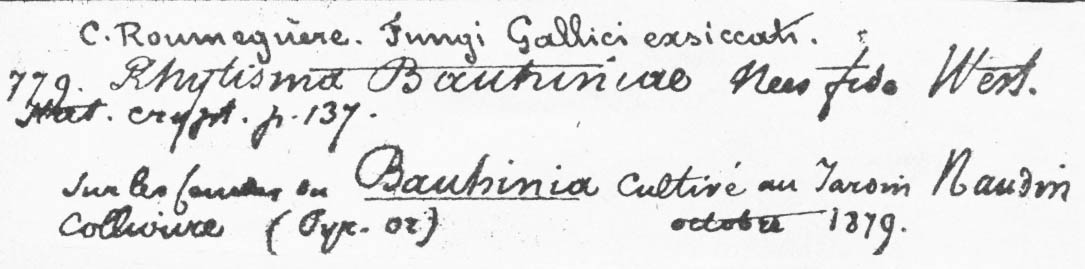 C. Roumeguère. Fungi Gallici exsiccati.
779. Rhytisma Bauhiniae Nees fide West.
crypt. p. 137.
Sur les feuilles du Bauhinia cultivé au Jardin Naudin
Collioure (Pyr. or)
octobre 1879.